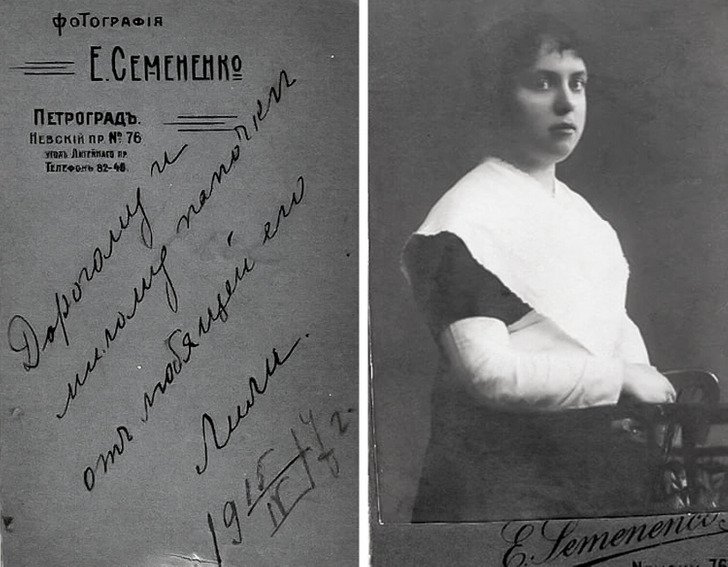 фоТографія
Е. Семененко
Петроградъ.
Невскій пр. № 76
уголъ Литейнаго пр.
Телефонъ 82-48.
Дорогому и
милому папочки
отъ любящей его
Лили.
1915
E. Semenenco